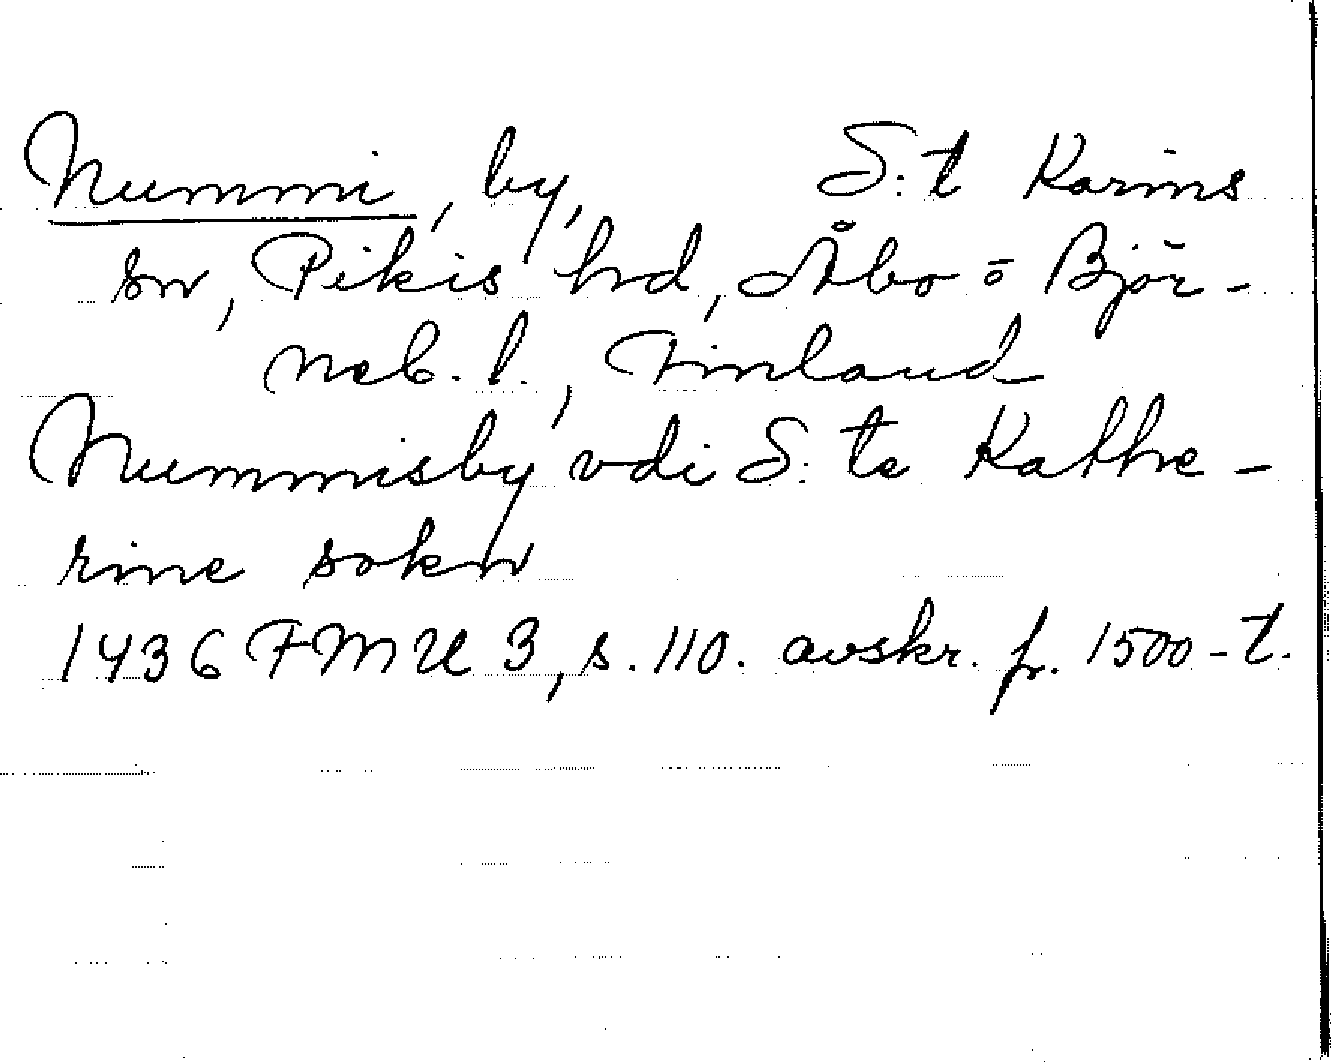 Nummi, by, S:t Karins
sn, Pikis hd, Åbo o Björ-
neb. l., Finland
Nummisby vdi S:te Kathe-
rine sokn
1436 FMU 3, s. 110. avskr. fr. 1500-t.